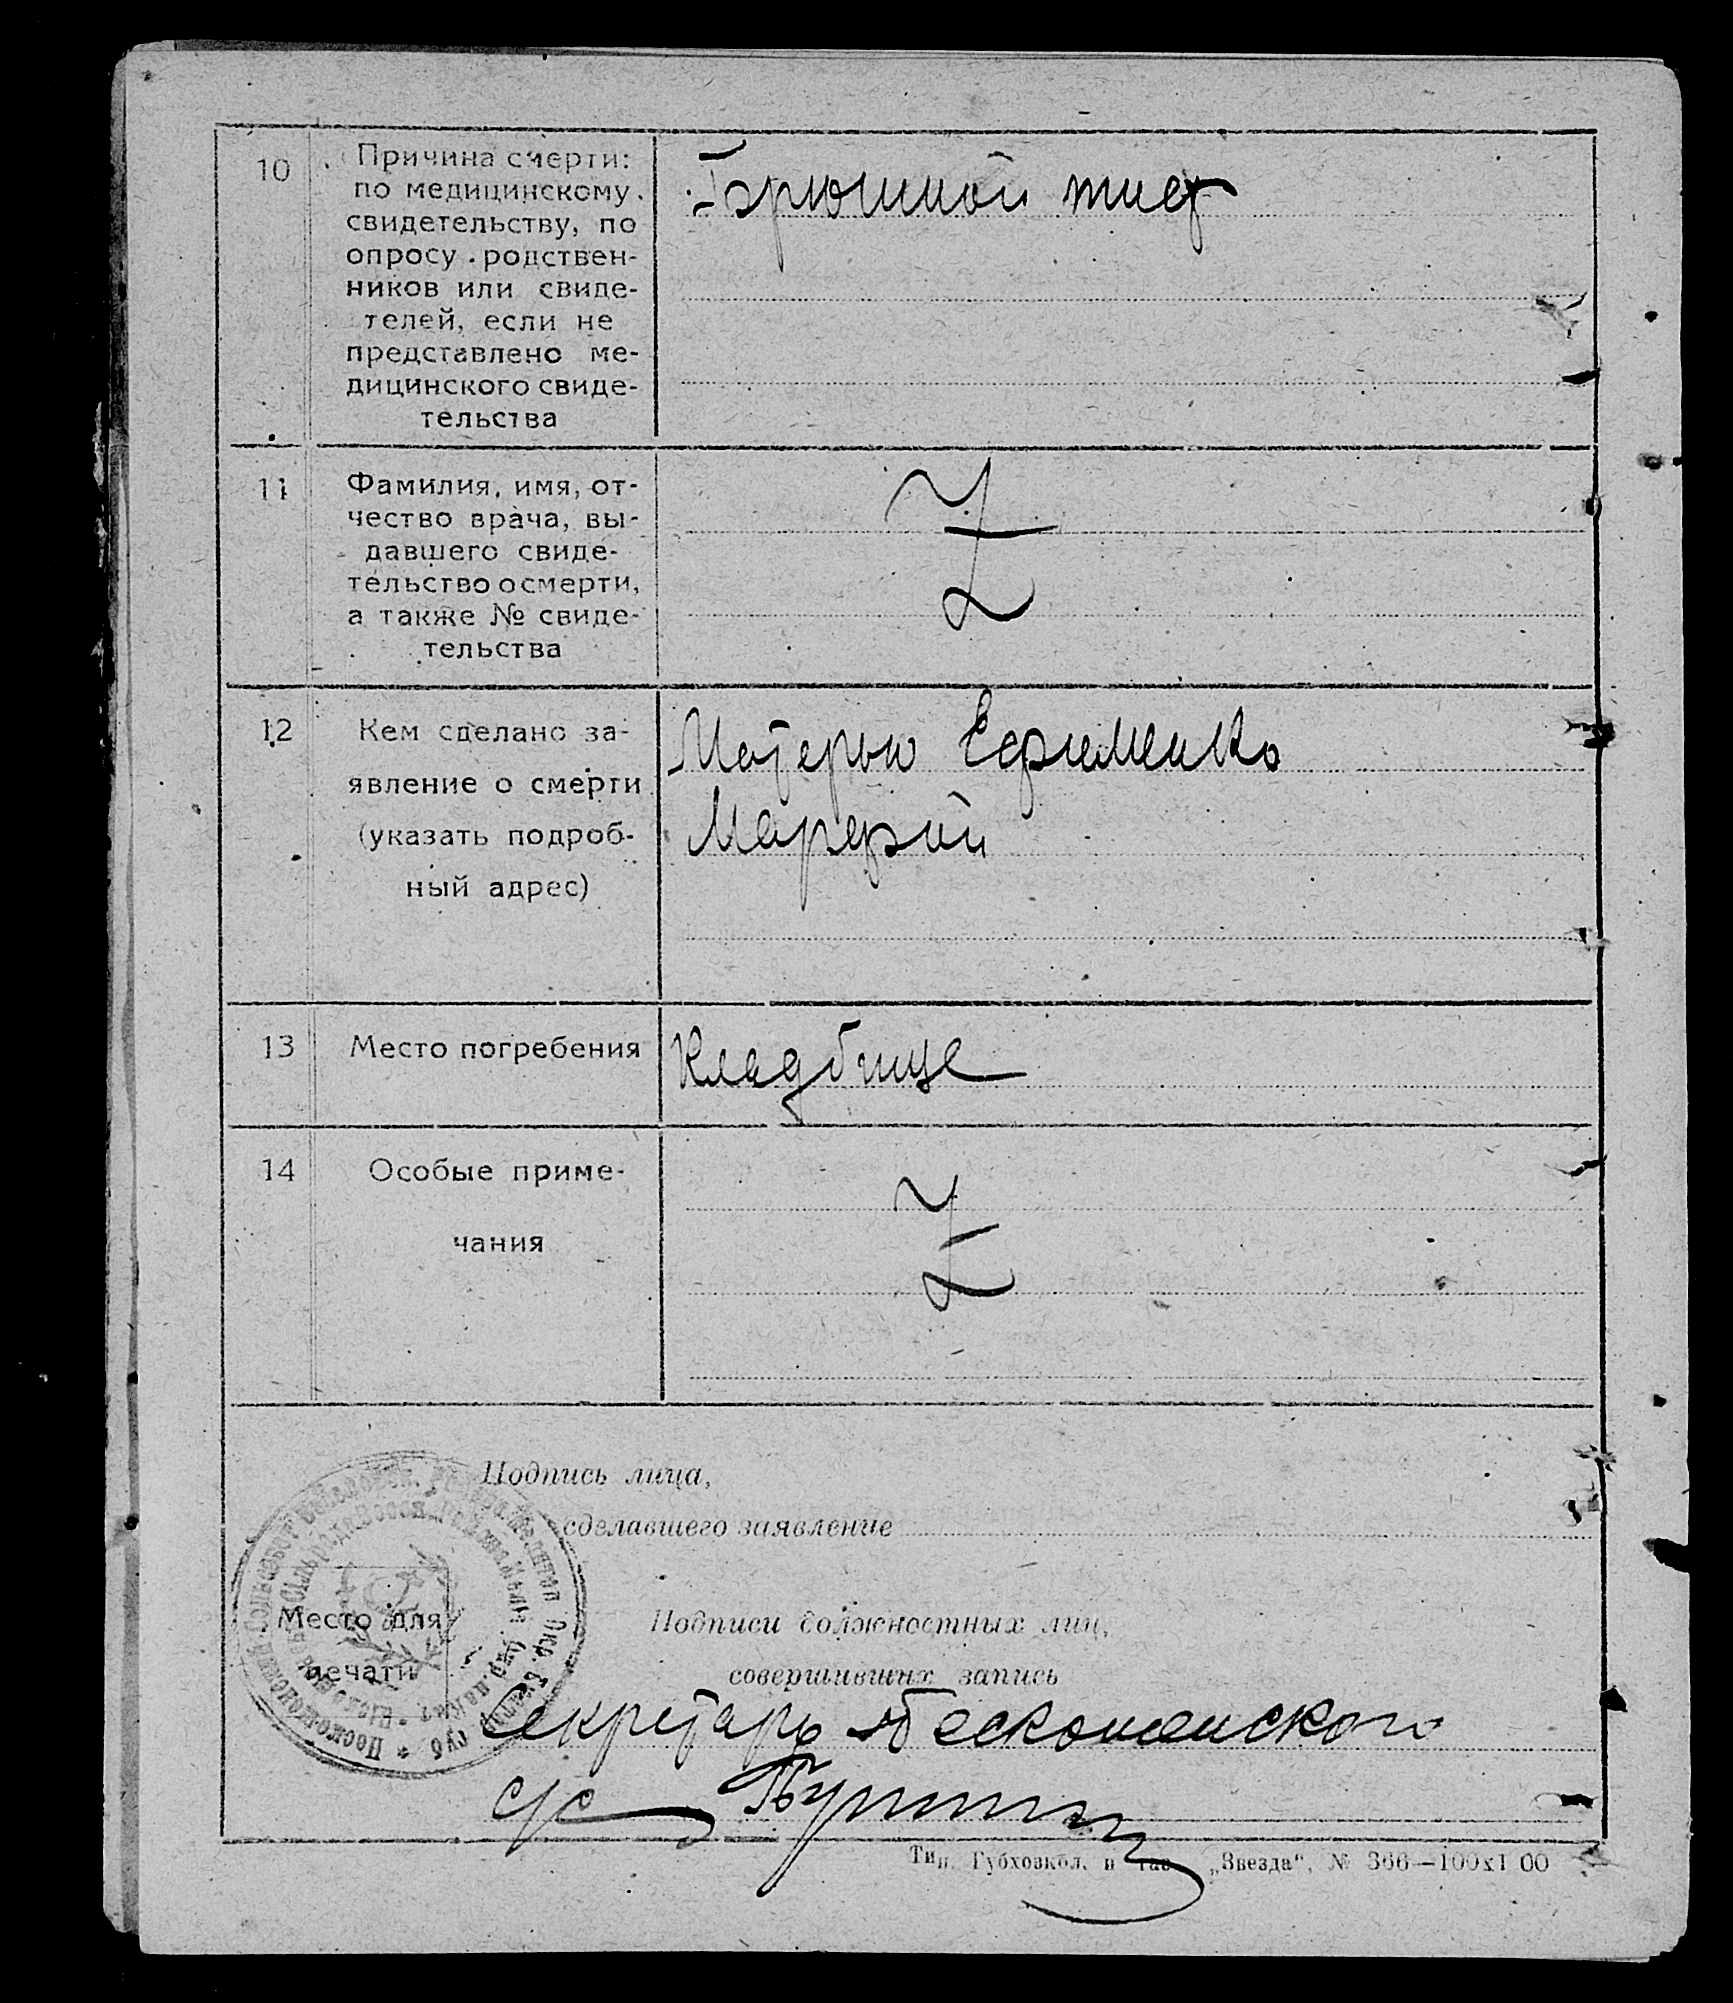 10
Причина смерти:
по медицинскому
свидетельству, по
опросу родствен-
ников или свиде-
телей, если не
представлено ме-
дицинского свиде-
тельства
Брюшной тиф
11
Фамилия, имя, от-
чество врача, вы-
давшего свиде-
тельство о смерти,
а также № свиде-
тельства
Z
12
Кем сделано за-
явление о смерти
(указать подроб-
ный адрес)
Матерью Ефименко
Марфой
13
Место погребения
Кладбище
14
Особые приме-
чания
Z
Подпись лица,
сделавшего заявление
Место для
печати
Подписи должностных лиц,
совершивших запись
Секретарь
с/с
Тип. „Звезда“, № 366—100х1 00